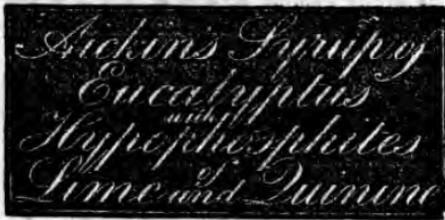 Aickins Syrup of
Eucalyptus
with
Hypophosphites
of
Lime and Quinine